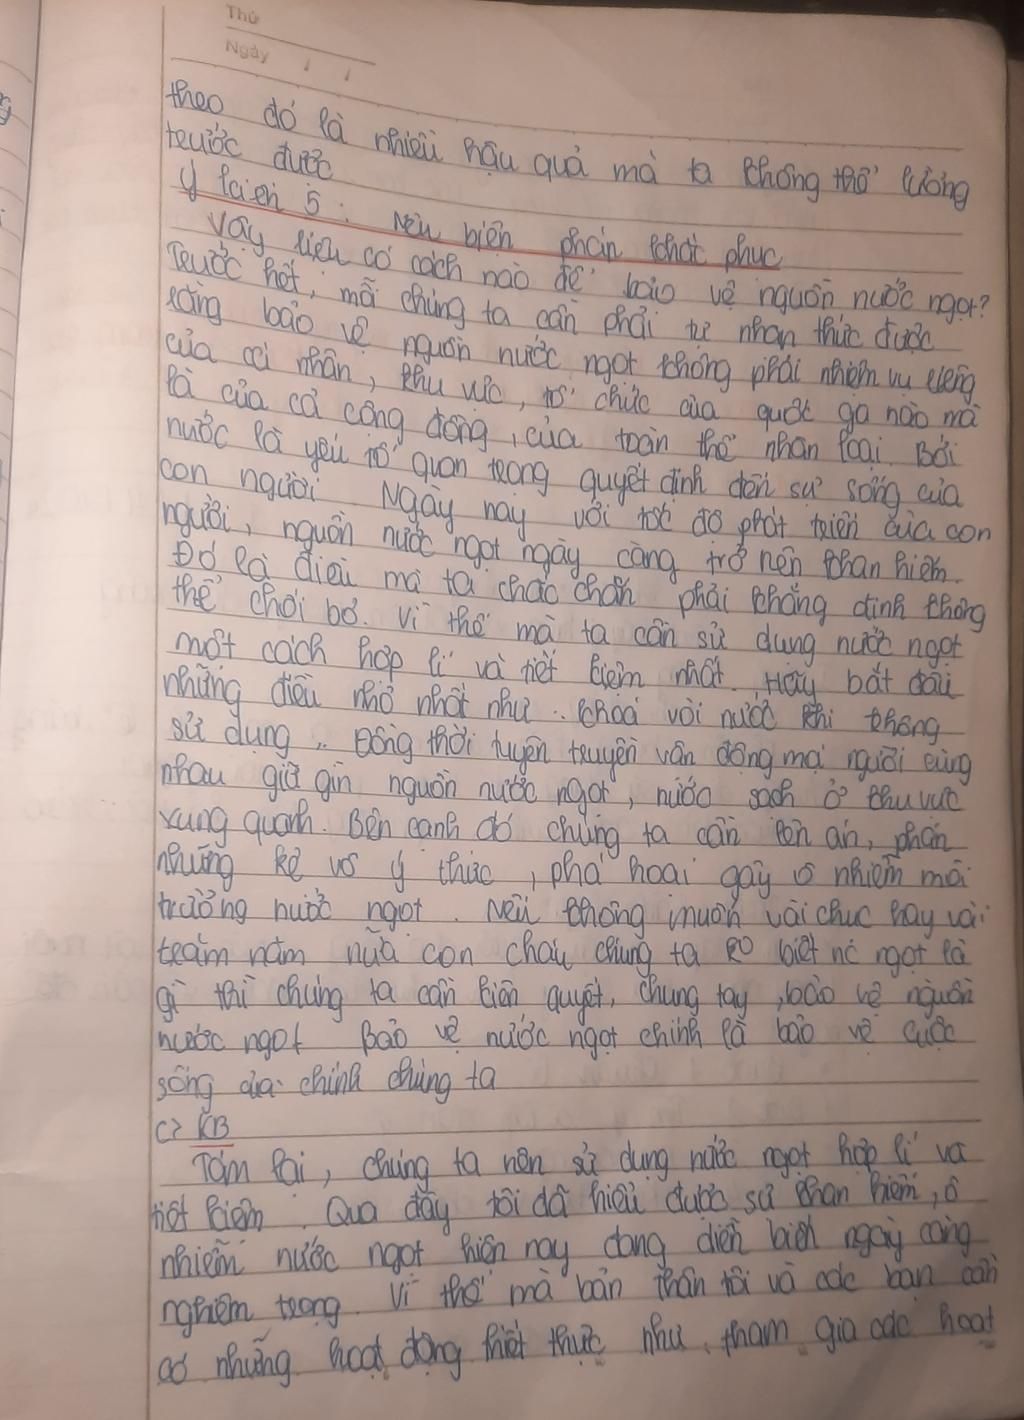 Thứ
Ngày / /
theo đó là nhiều hậu quả mà ta không thể lường
trước được
ý kiến 5: Nêu biện pháp khắc phục
Vậy liệu có cách nào để bảo vệ nguồn nước ngọt?
Trước hết, mỗi chúng ta cần phải tự nhận thức được
rằng bảo vệ nguồn nước ngọt không phải nhiệm vụ riêng
của cá nhân, khu vực, tổ chức của quốc gia nào mà
là của cả cộng đồng, của toàn thể nhân loại. Bởi
nước là yếu tố quan trọng quyết định đến sự sống của
con người Ngày nay với tốc độ phát triển của con
người, nguồn nước ngọt ngày càng trở nên khan hiếm.
Đó là điều mà ta chắc chắn phải khẳng định không
thể chối bỏ. Vì thế mà ta cần sử dụng nước ngọt
một cách hợp lí và tiết kiệm nhất. Hãy bắt đầu
những điều nhỏ nhất như: khoá vòi nước khi không
sử dụng,.. Đồng thời tuyên truyền vận động mọi người cùng
nhau giữ gìn nguồn nước ngọt, nước sạch ở khu vực
xung quanh. Bên cạnh đó chúng ta cần lên án, phán
những kẻ vô ý thức, phá hoại gây ô nhiễm môi
trường nước ngọt. Nếu không muốn vài chục hay vài
trăm năm nữa con cháu chúng ta ko biết nc ngọt là
gì thì chúng ta cần kiên quyết, chung tay, bảo vệ nguồn
nước ngọt Bảo vệ nước ngọt chính là bảo vệ cuộc
sống của chính chúng ta
c> KB
Tóm lại, chúng ta nên sử dụng nước ngọt hợp lí và
tiết kiệm. Qua đây tôi đã hiểu được sự khan hiếm, ô
nhiễm nước ngọt hiện nay đang diễn biến ngày càng
nghiêm trọng. Vì thế mà bản thân tôi và các bạn cần
có những hoạt động thiết thực như, tham gia các hoạt